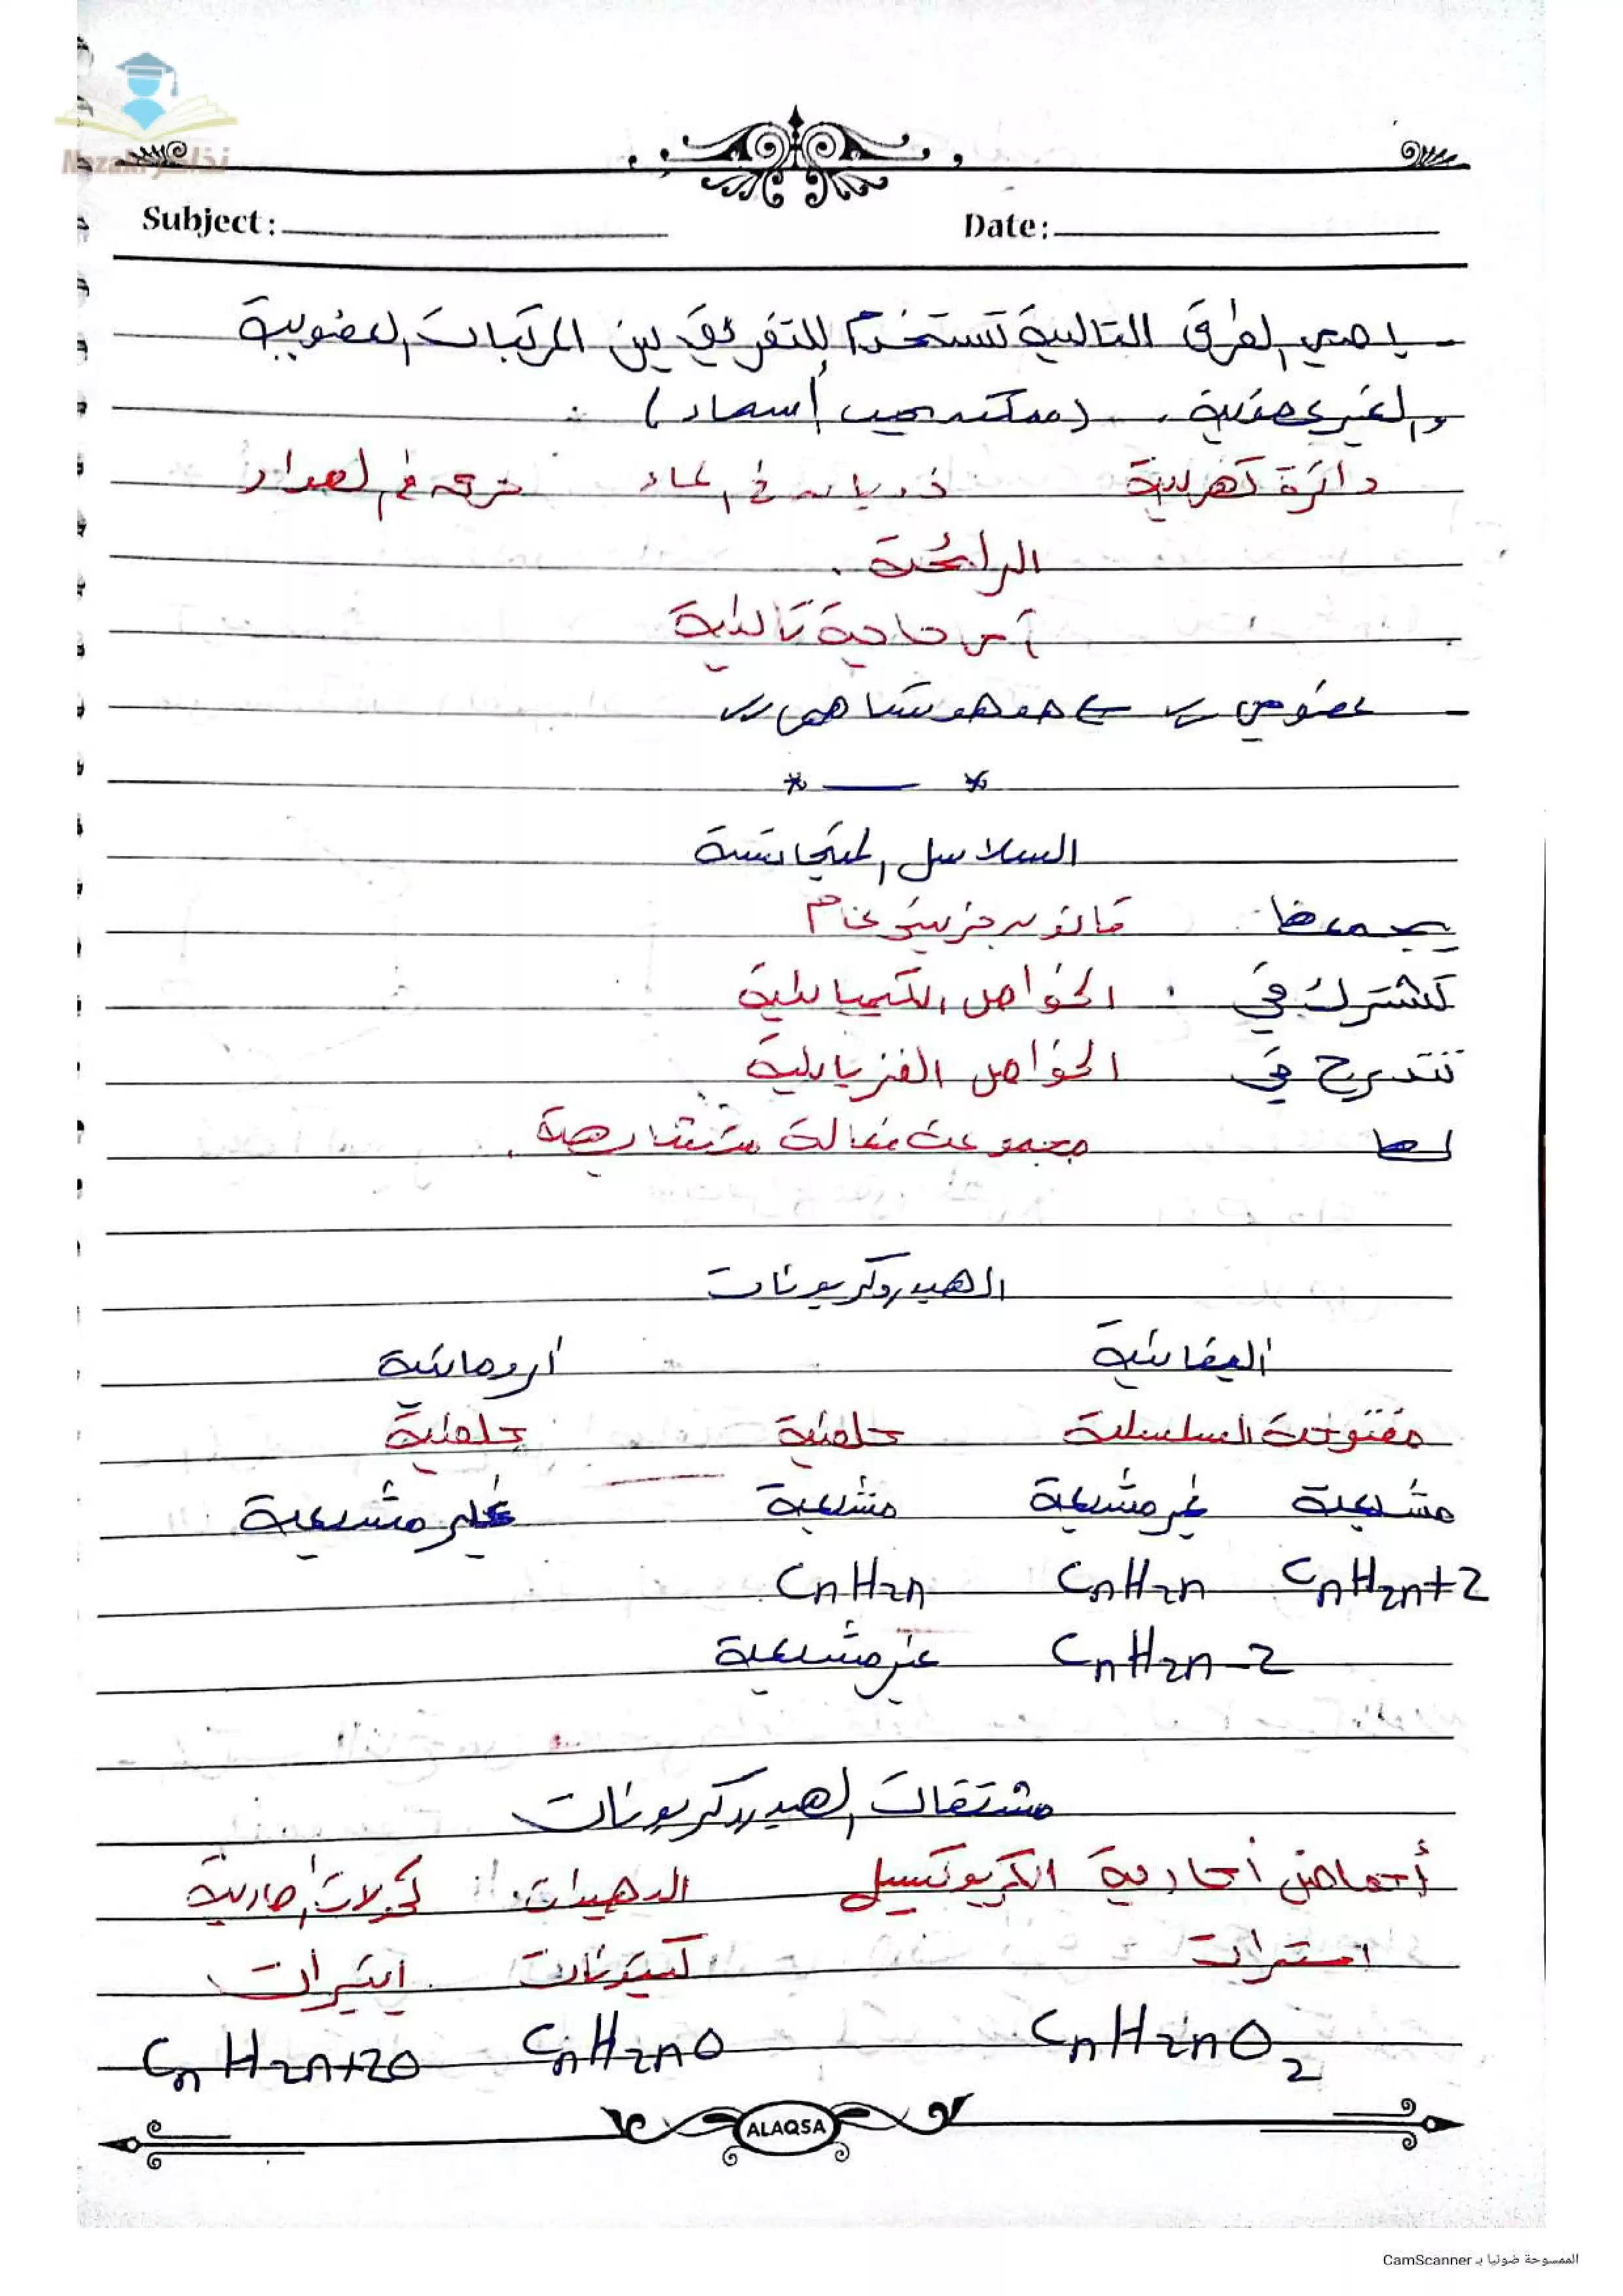 Nezakr نذاكر
Subject: Date:
- بأي الطرق التالية تستخدم للتفريق بين المركبات العضوية
والغير عضوية . (ممكنه يجيب أسماء) :
دائرة كهربية ذوبانه في الماء حرقه في الهواء
الرائحة .
- عضوي
* — *
السلاسل المتجانسة
يجمعها قانون جزيئي عام
تشترك في : الخواص الكيميائية
تتدرج في الخواص الفزيائية
لها مجموعة فعالة متشابهة .
الهيدروكربونات
اليفاتية اروماتية
مفتوحة السلسلة حلقية حلقية
مشبعة غير مشبعة مشبعة غير مشبعة
CnH2n+2 CnH2n CnH2n
CnH2n-2 غير مشبعة
مشتقات الهيدروكربونات
أحماض أحادية الكربوكسيل الدهيدات كحولات أحادية
استرات كيتونات ايثيرات
CnH2nO2 CnH2nO CnH2n+2O
ALAQSA
الممسوحة ضوئيا بـ CamScanner